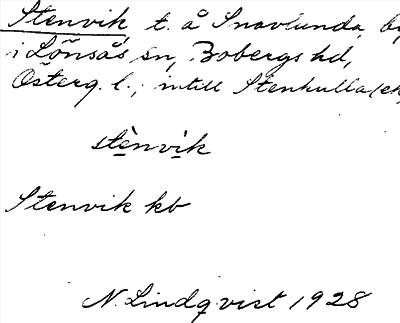 Stenvik t. å Snavlunda, by
i Lönsås sn, Bobergs hd,
Österg. l.; intill Stenkulla (ek
stènvik
Stenvik kb
N. Lindqvist 1928